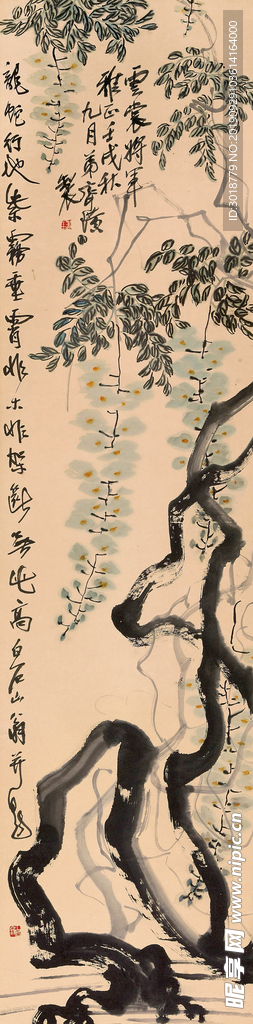 雲裳将軍
雅正壬戌秋
九月弟齊璜
製
龍蛇行地紫霧垂霄非木非架斷無此高白石山翁并題
ID:3018779 NO:20190929105614164000
昵享网 www.nipic.cn